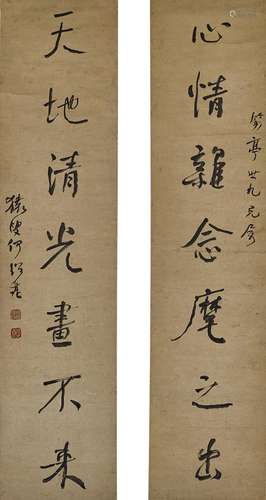 亭世九兄屬
心情雜念麾之出
天地清光畫不来
猨叟何紹基